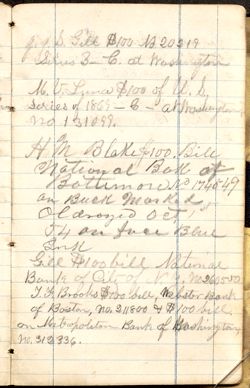 J. S. Gill $100 No 20219
Series 3 - C. at Washington
M. V. Luna $100 of U. S.
series of 1869 - C - at Washington
no 131099.
H M Blake $100. Bill
National Bank of
Baltimore No 174049
on Back Marked
Oct 1st
54 on face Blue
Ink
Gill $100 bill National
Bank of City of N.Y. No 260550
T. F. Brooks $100 bill, Webster Bank
of Boston, no. 211800 & $100 bill
on Metropolitan Bank of Washington
No. 312336.